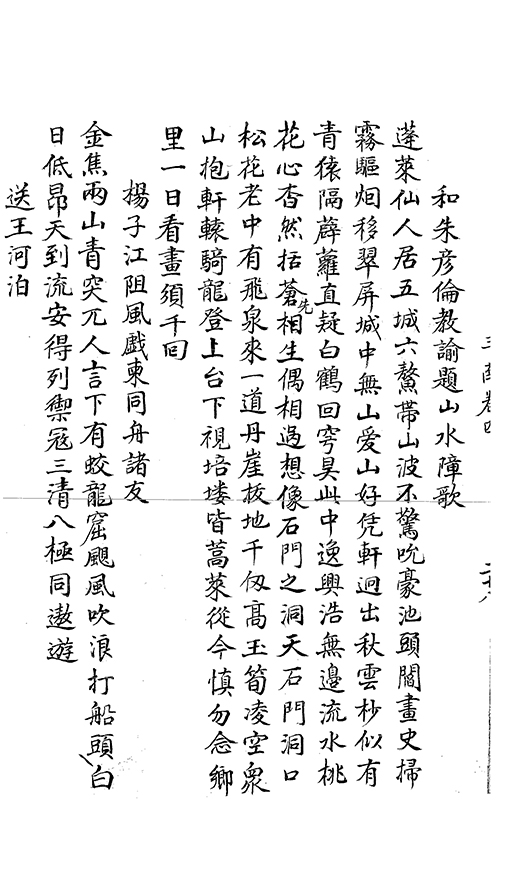 和朱彦倫教諭題山水障歌
蓬萊仙人居五城六鰲帶山波不驚吮豪池頭閻畫史掃
霧驅烟移翠屏城中無山愛山好凭軒迥出秋雲杪似有
青猿隔薜蘿直疑白鶴回穹昊此中逸興浩無邊流水桃
花心杳然括蒼相先生偶相過想像石門之洞天石門洞口
松花老中有飛泉來一道丹崖拔地千仭高玉筍凌空衆
山抱軒轅騎龍登上台下視培塿皆蒿萊從今慎勿念鄉
里一日看畫須千回
楊子江阻風戲柬同舟諸友
金焦兩山青突兀人言下有蛟龍窟颶風吹浪打船頭白
日低昂天到流安得列禦冦三清八極同遨遊
送王河泊